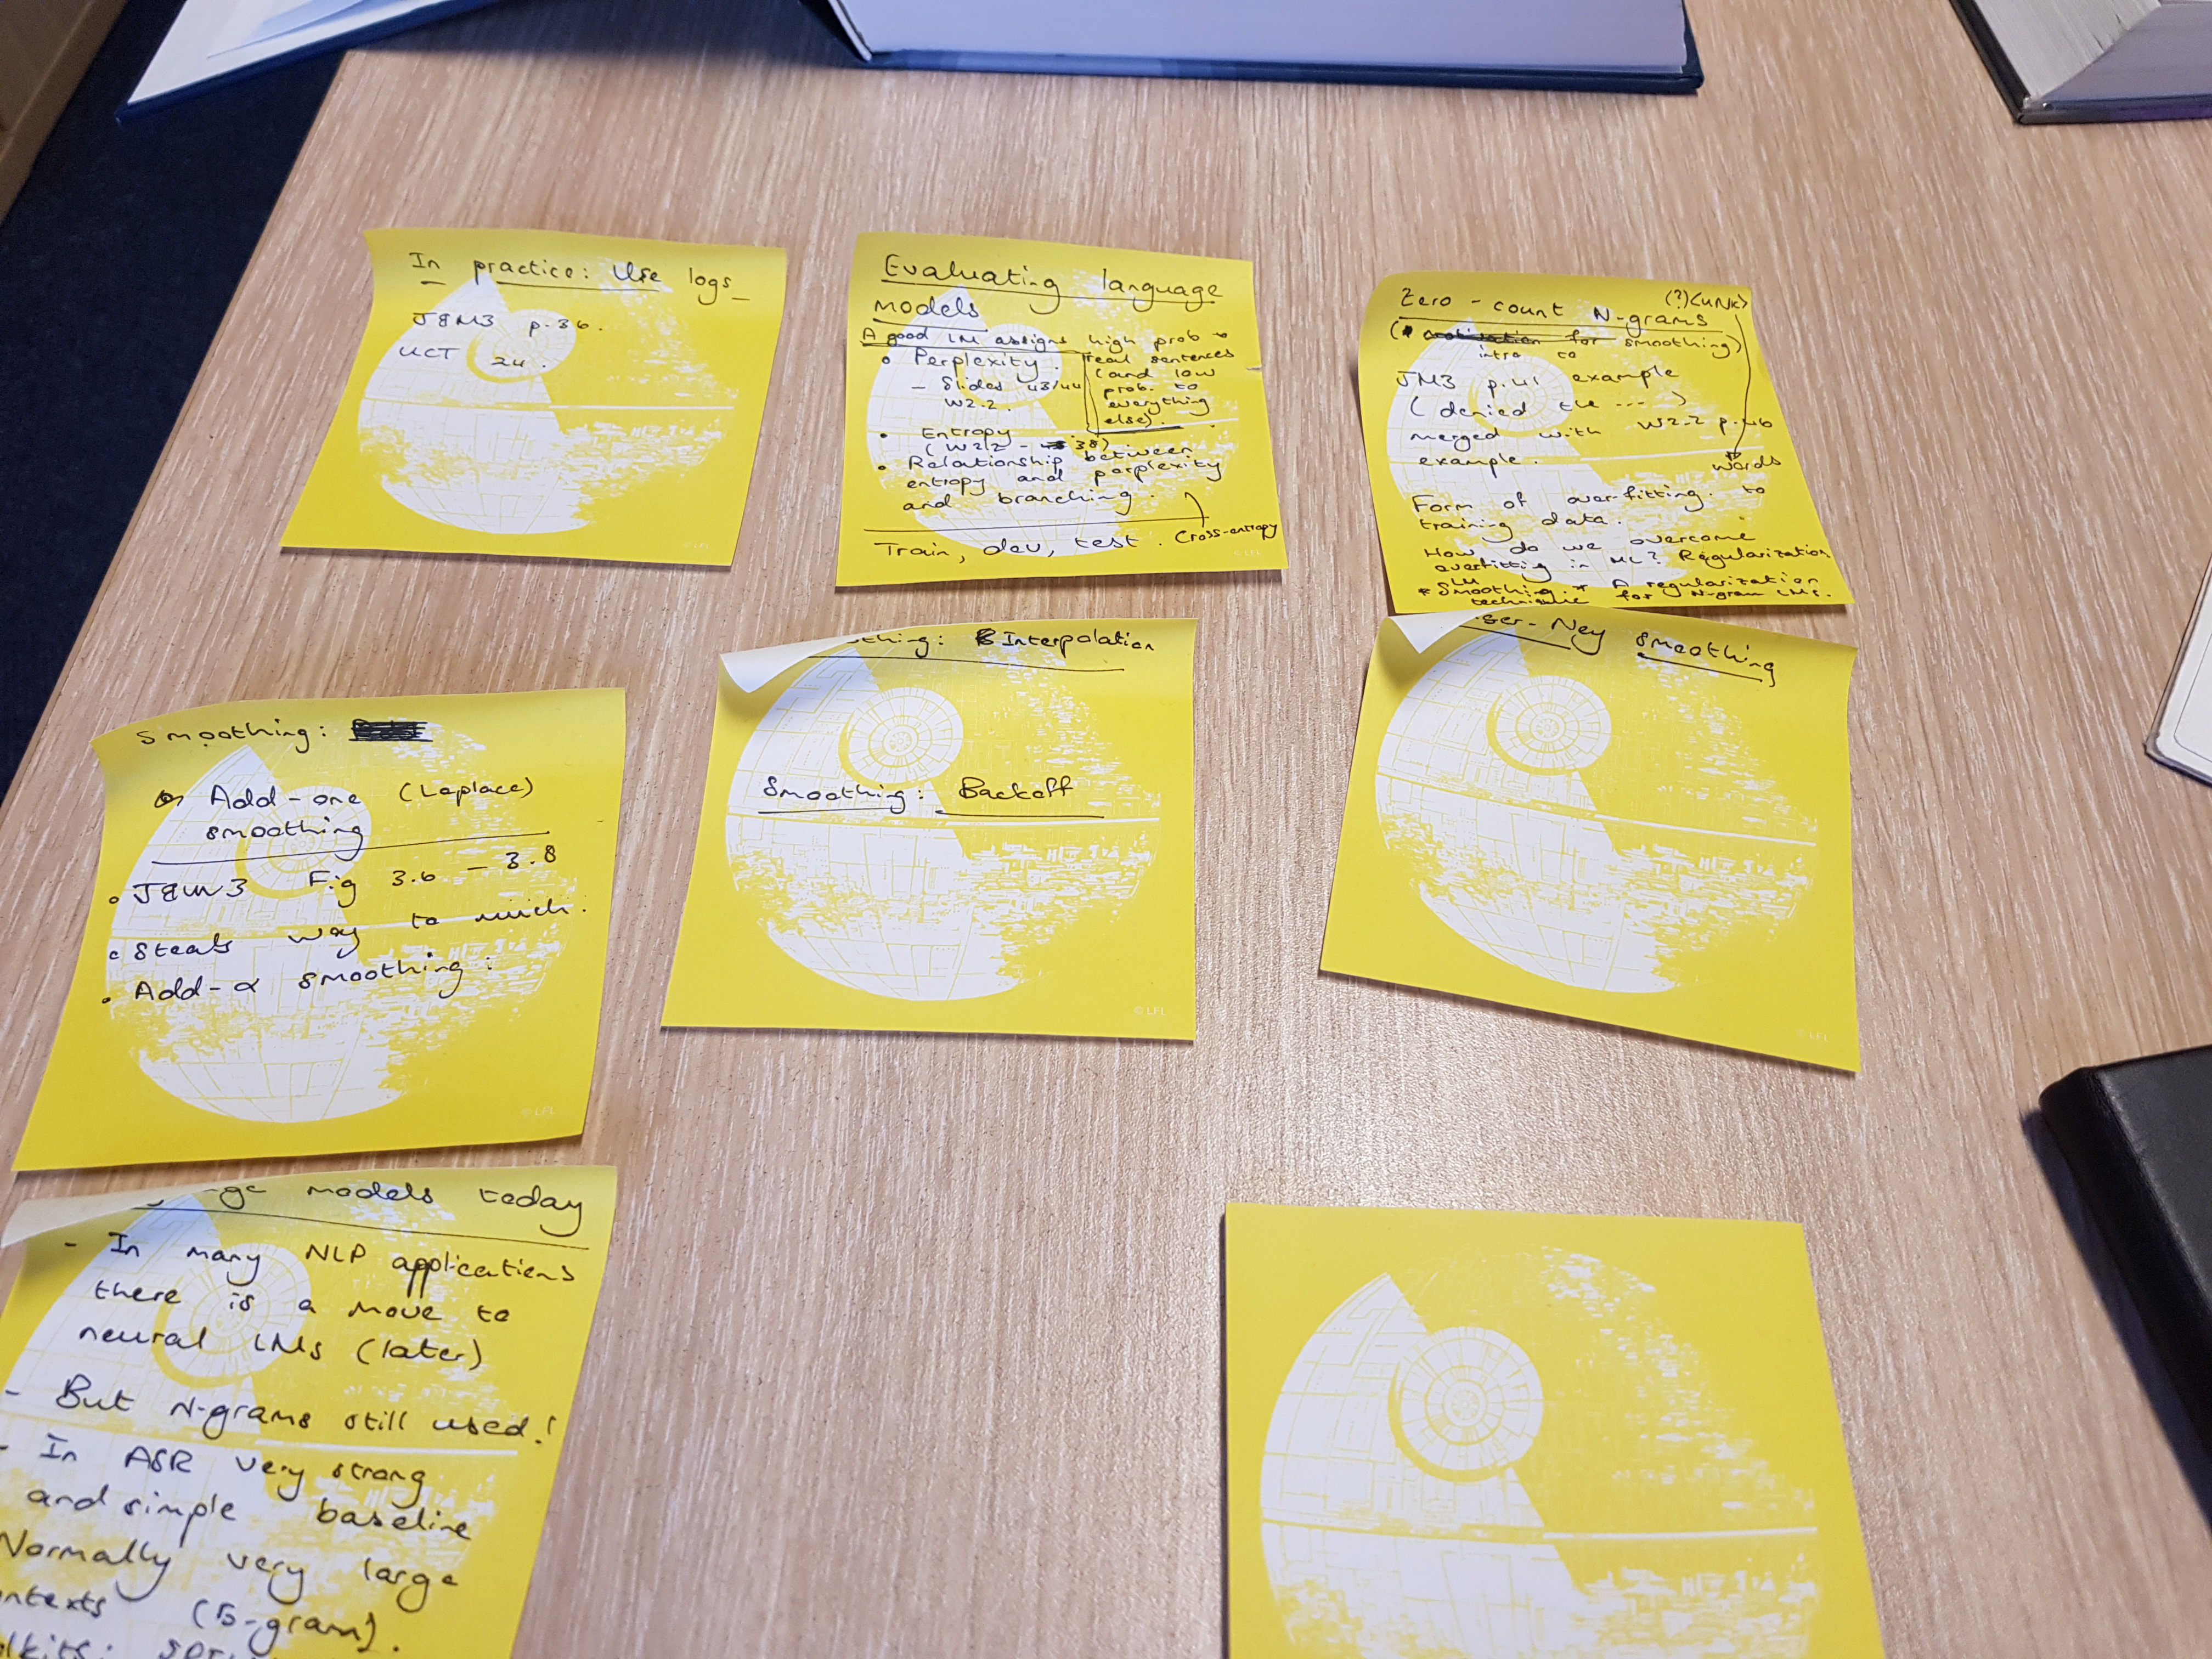 In practice: Use logs
J&M3 p.36.
UCT 24.
Evaluating language
models
A good LM assigns high prob to
real sentences
(and low
prob. to
everything
else).
• Perplexity.
– Slides 43/44
W2.2.
• Entropy
(W2.2 - 38)
• Relationship between
entropy and perplexity
and branching.
Cross-entropy
Train, dev, test.
Zero-count N-grams
(?)<UNK>
words
( for smoothing)
intro to
JM3 p.41 example
(denied the ---)
merged with W2.2 p.46
example.
Form of over-fitting to
training data.
How do we overcome
overfitting in ML? Regularization
LM
* Smoothing.* A regularization
technique for N-gram LMs.
Smoothing:
Add-one (Laplace)
smoothing
• J&M3 Fig 3.6 – 3.8
• Steals way to much.
• Add-α smoothing:
thing: Interpolation
Smoothing: Backoff
ser-Ney smoothing
ge models today
- In many NLP applications
there is a move to
neural LMs (later)
- But N-grams still used!
- In ASR very strong
and simple baseline
Normally very large
ntexts (5-gram).
lkits:
© LFL
© LFL
© LFL
© LFL
© LFL